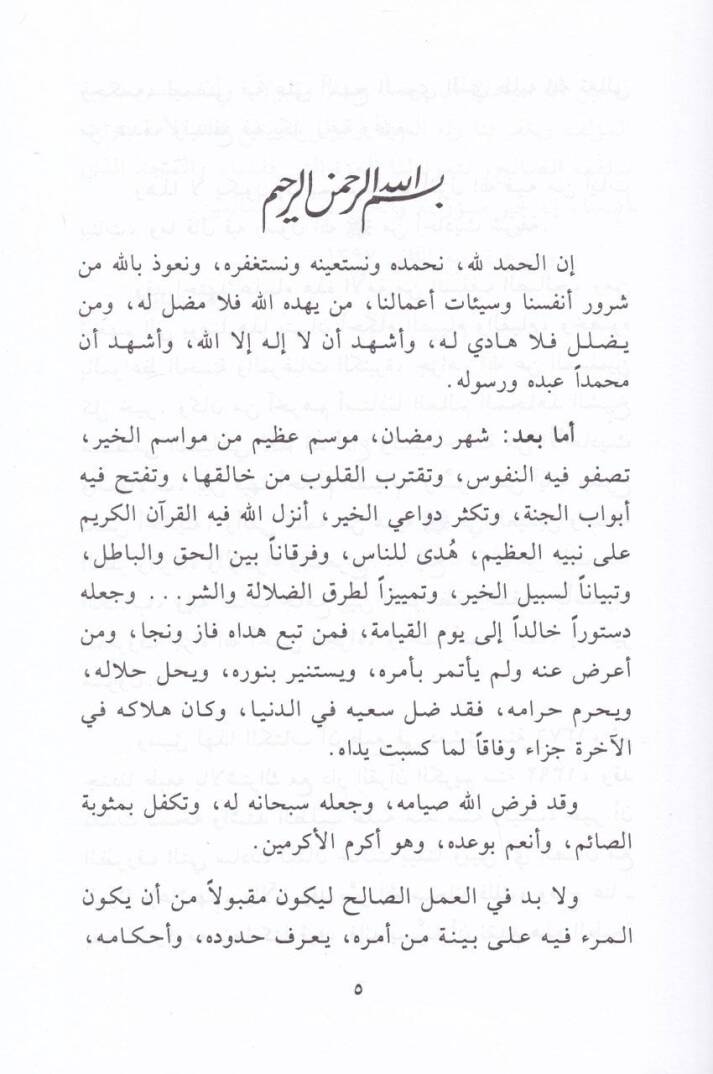 بسم الله الرحمن الرحيم
إن الحمد لله، نحمده ونستعينه ونستغفره، ونعوذ بالله من
شرور أنفسنا وسيئات أعمالنا، من يهده الله فلا مضل له، ومن
يضلل فلا هادي له، وأشهد أن لا إله إلا الله، وأشهد أن
محمداً عبده ورسوله.
أما بعد: شهر رمضان، موسم عظيم من مواسم الخير،
تصفو فيه النفوس، وتقترب القلوب من خالقها، وتفتح فيه
أبواب الجنة، وتكثر دواعي الخير، أنزل الله فيه القرآن الكريم
على نبيه العظيم، هُدى للناس، وفرقاناً بين الحق والباطل،
وتبياناً لسبيل الخير، وتمييزاً لطرق الضلالة والشر... وجعله
دستوراً خالداً إلى يوم القيامة، فمن تبع هداه فاز ونجا، ومن
أعرض عنه ولم يأتمر بأمره، ويستنير بنوره، ويحل حلاله،
ويحرم حرامه، فقد ضل سعيه في الدنيا، وكان هلاكه في
الآخرة جزاء وفاقاً لما كسبت يداه.
وقد فرض الله صيامه، وجعله سبحانه له، وتكفل بمثوبة
الصائم، وأنعم بوعده، وهو أكرم الأكرمين.
ولا بد في العمل الصالح ليكون مقبولاً من أن يكون
المرء فيه على بينة من أمره، يعرف حدوده، وأحكامه،
٥